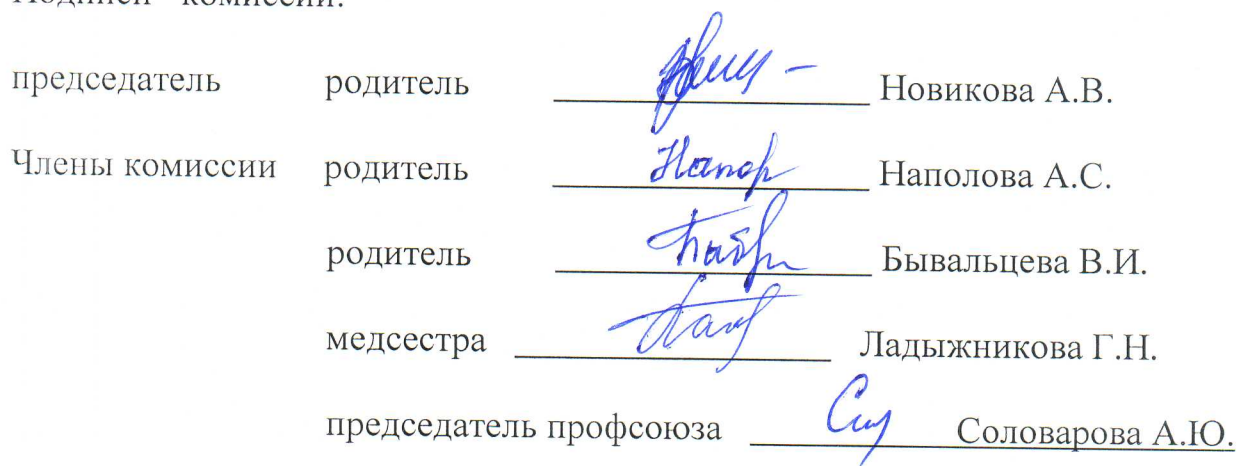 комиссии:
председатель родитель Новикова А.В.
Члены комиссии родитель Наполова А.С.
родитель Бывальцева В.И.
медсестра Ладыжникова Г.Н.
председатель профсоюза Соловарова А.Ю.